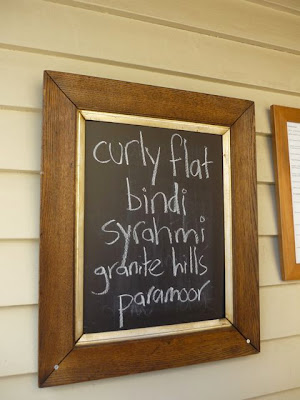 curly flat
bindi
syrahmi
granite hills
paramoor